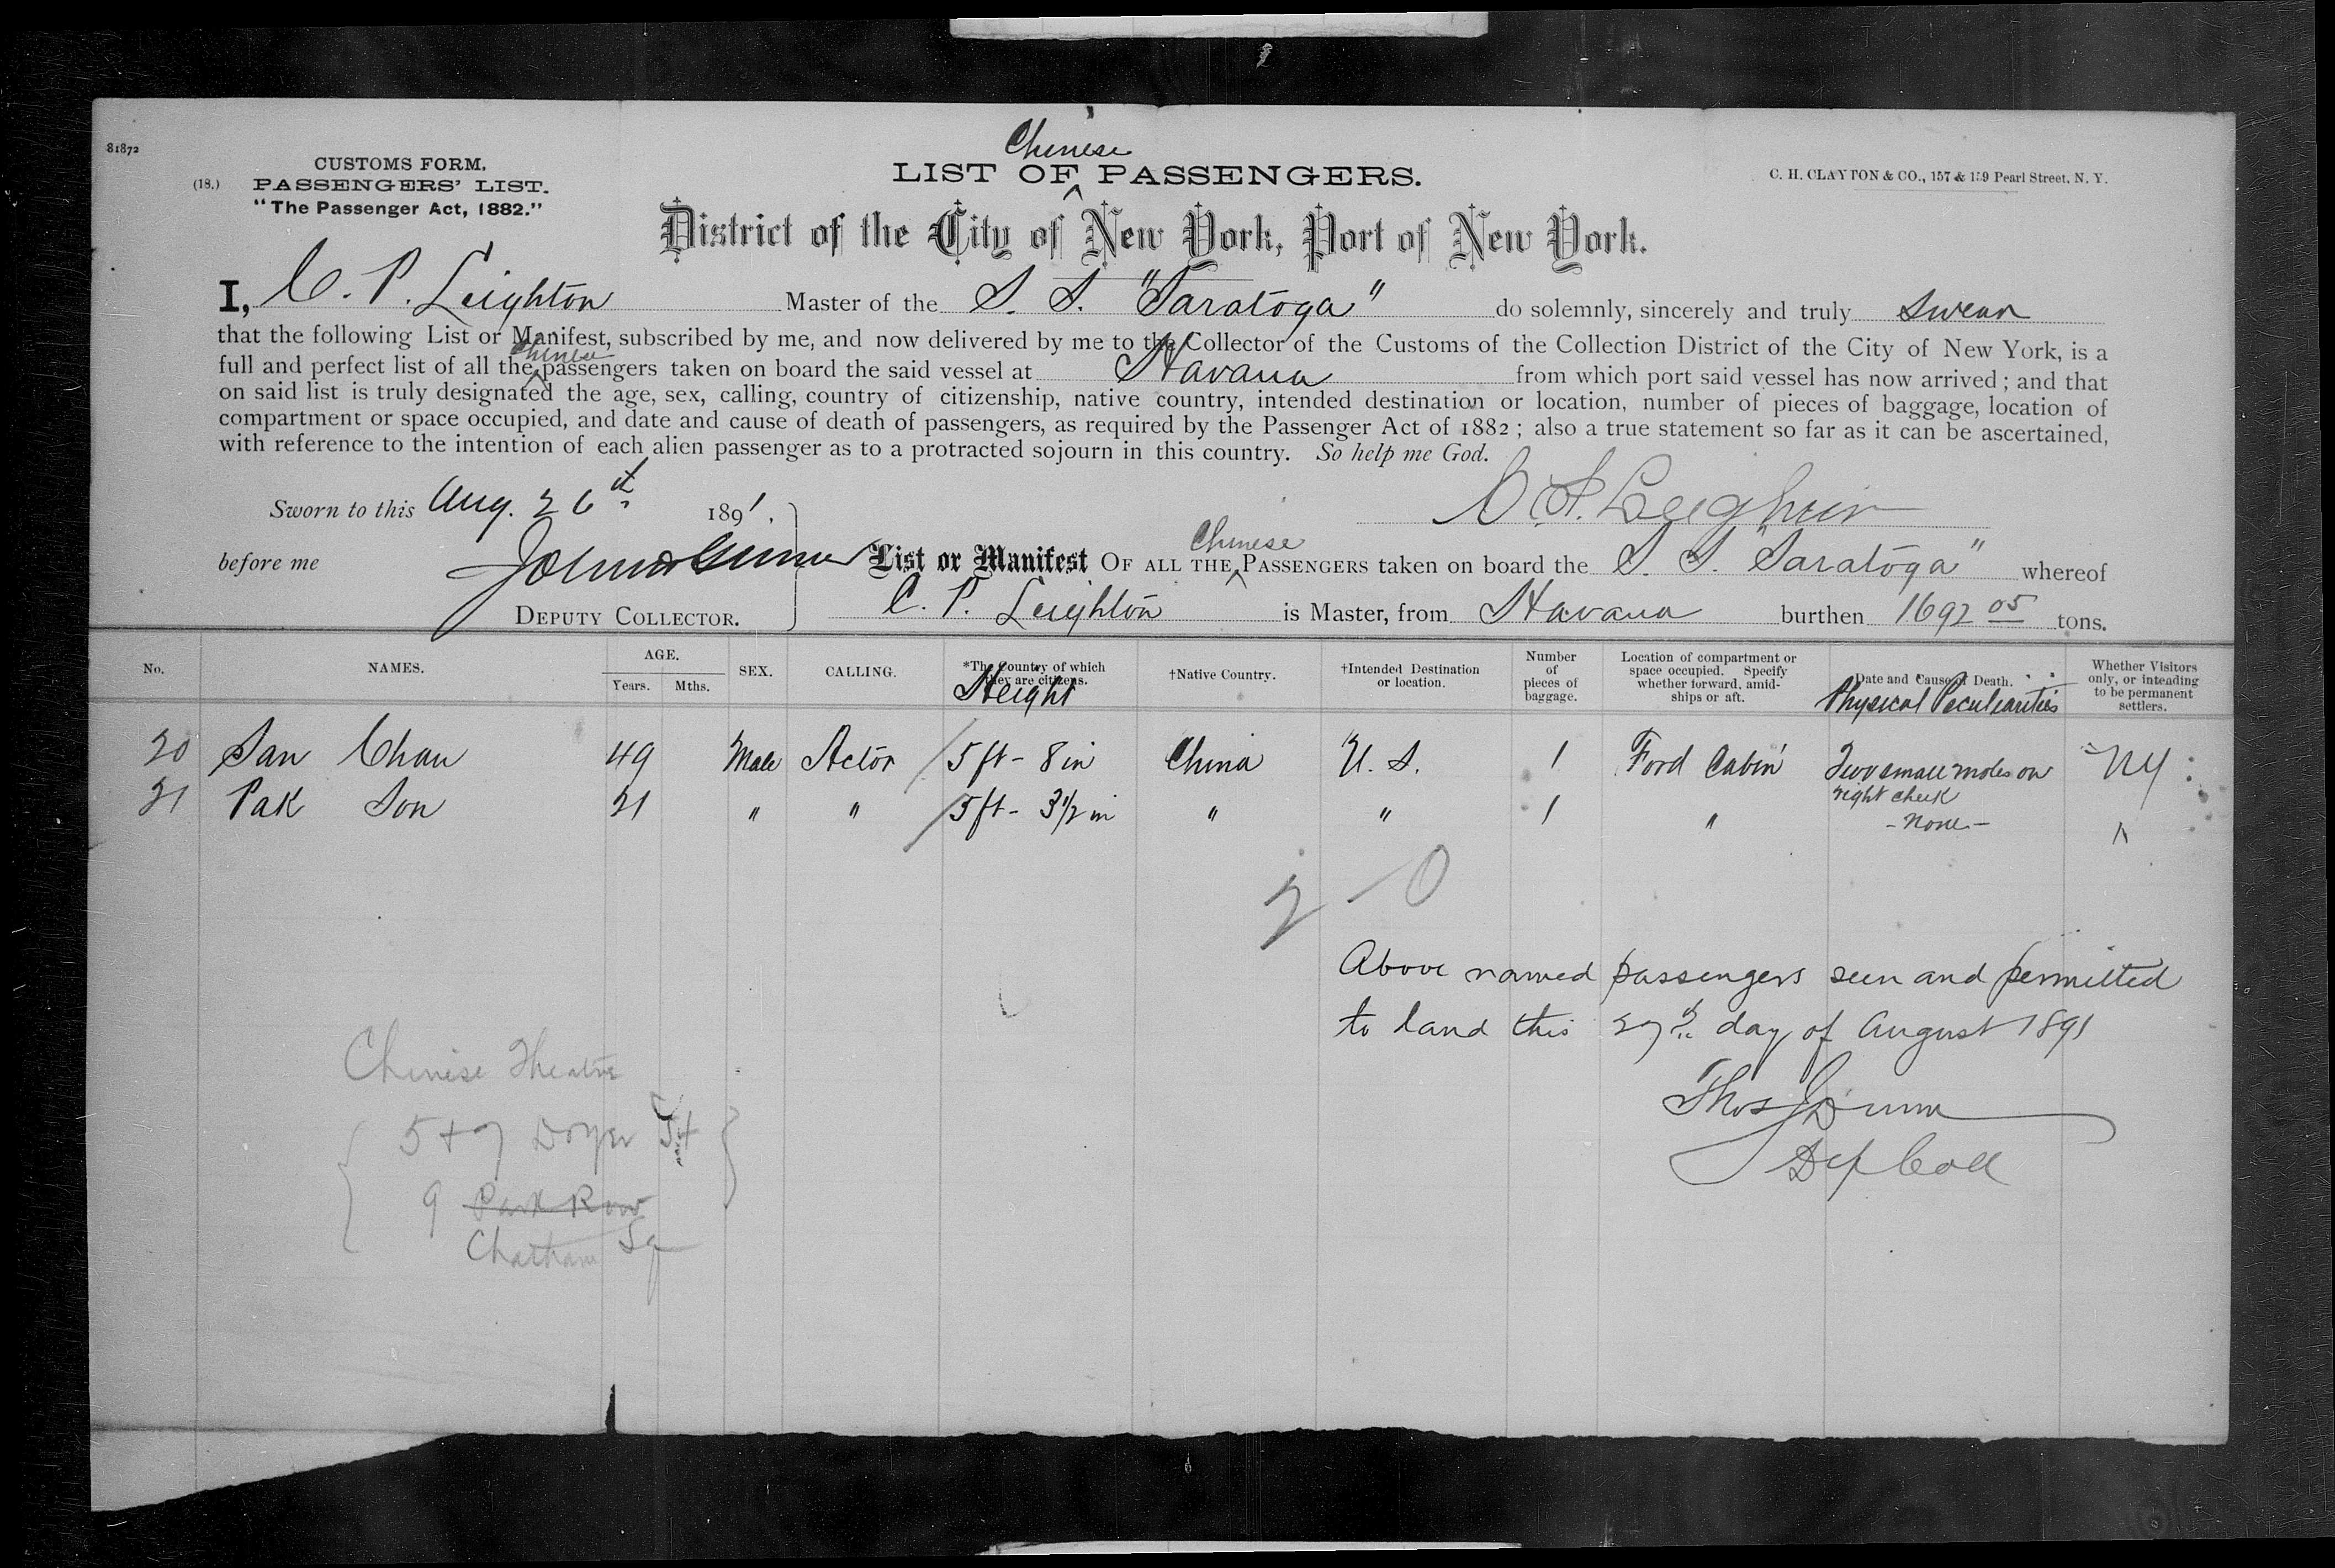 81872
CUSTOMS FORM.
(18.) PASSENGERS' LIST.
"The Passenger Act, 1882."
Chinese
LIST OF ^ PASSENGERS.
C. H. CLAYTON & CO., 157 & 159 Pearl Street, N. Y.
District of the City of New York, Port of New York.
I, C. P. Leighton Master of the S. S. "Saratoga" do solemnly, sincerely and truly swear
that the following List or Manifest, subscribed by me, and now delivered by me to the Collector of the Customs of the Collection District of the City of New York, is a
Chinese
full and perfect list of all the ^ passengers taken on board the said vessel at Havana from which port said vessel has now arrived; and that
on said list is truly designated the age, sex, calling, country of citizenship, native country, intended destination or location, number of pieces of baggage, location of
compartment or space occupied, and date and cause of death of passengers, as required by the Passenger Act of 1882; also a true statement so far as it can be ascertained,
with reference to the intention of each alien passenger as to a protracted sojourn in this country. So help me God.
Sworn to this Aug. 26th 1891.
C. P. Leighton
before me
Chinese
List or Manifest OF ALL THE ^ PASSENGERS taken on board the S. S. "Saratoga" whereof
DEPUTY COLLECTOR.
C. P. Leighton is Master, from Havana burthen 1692 05 tons.
No. NAMES. AGE. Years. Mths. SEX. CALLING. *The Country of which they are citizens. Height †Native Country. †Intended Destination or location. Number of pieces of baggage. Location of compartment or space occupied. Specify whether forward, amidships or aft. Date and Cause of Death. Physical Peculiarities Whether Visitors only, or intending to be permanent settlers.
20 San Chan 49 Male Actor / 5 ft - 8 in China U. S. 1 Ford Cabin Two small moles on right cheek NY
21 Pak Son 21 " " / 5 ft - 3 1/2 in " " 1 " - None - "
2 - 0
Above named passengers seen and permitted
to land this 27th day of August 1891
Thos J Dunn
Dep Coll
Chinese Theatre
5 + 7 Doyer St
9 Park Row
Chatham Sq